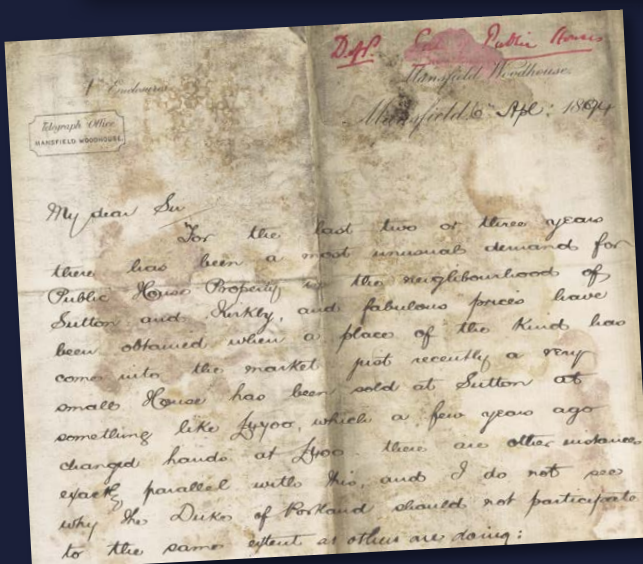 1 Enclosure
Dept. Public House
Mansfield Woodhouse.
Telegraph Office
MANSFIELD WOODHOUSE.
Mansfield 6 Apl: 1894
My dear Sir
For the last two or three years
there has been a most unusual demand for
Public House Property in the neighbourhood of
Sutton and Kirkby, and fabulous prices have
been obtained when a place of the kind has
come into the market just recently a very
small House has been sold at Sutton at
something like which a few years ago
changed hands at £400. there are other instances
exactly parallel with this, and I do not see
why the Duke of Portland should not participate
to the same extent as others are doing: